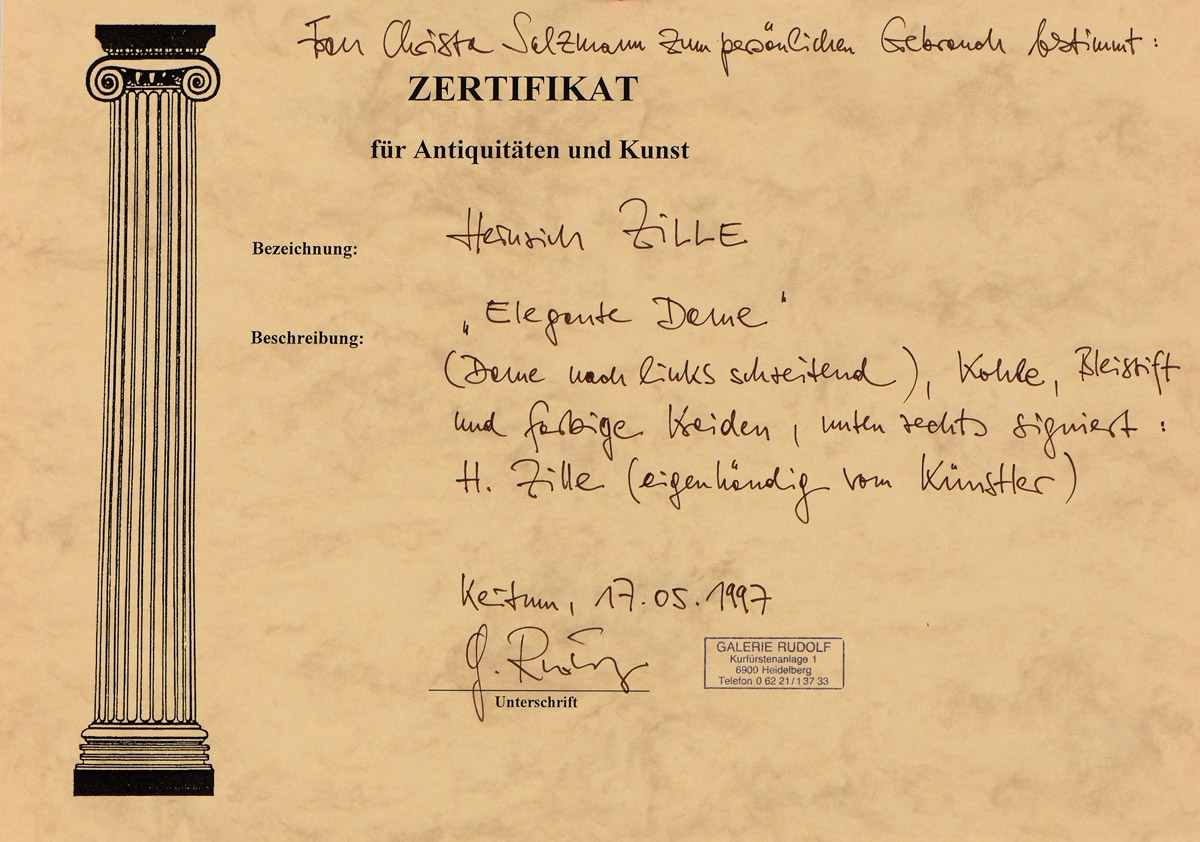 Frau Christa Salzmann zum persönlichen Gebrauch bestimmt:
ZERTIFIKAT
für Antiquitäten und Kunst
Bezeichnung:
Heinrich ZiLLE
Beschreibung:
„Elegante Dame"
(Dame nach links schreitend), Kohle, Bleistift
und farbige Kreiden, unten rechts signiert:
H. Zille (eigenhändig vom Künstler)
Keitum, 17.05.1997
Unterschrift
GALERIE RUDOLF
Kurfürstenanlage 1
6900 Heidelberg
Telefon 0 62 21 / 1 37 33